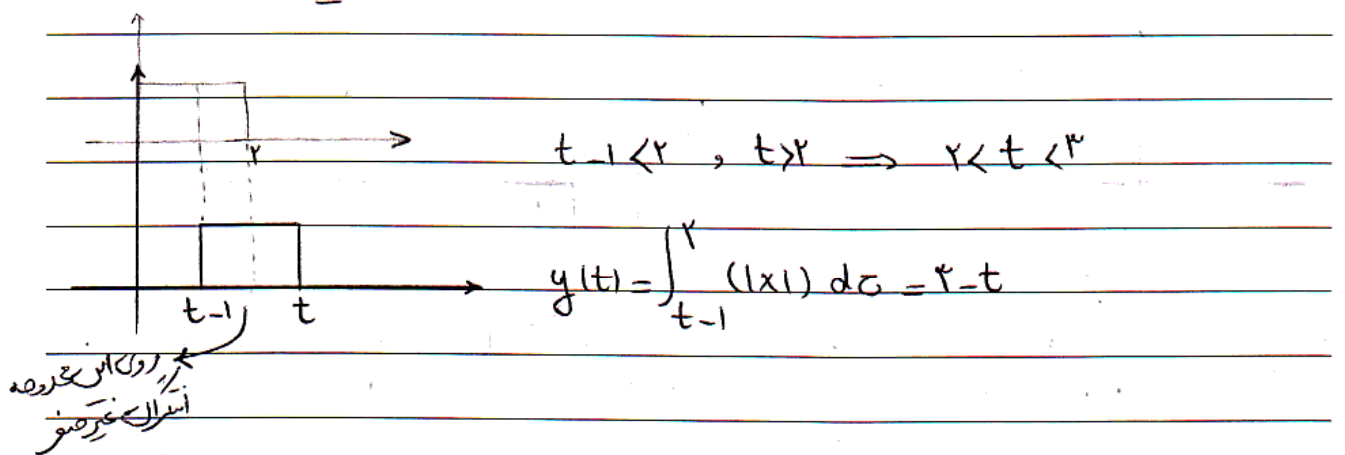 ۲
t-۱<۲ , t>۲ ⟹ ۲< t <۳
y(t)=∫_{t-۱}^{۲} (۱×۱) dτ = ۳-t
t-۱ t
روی این محدوده
انتگرال غیر صفر